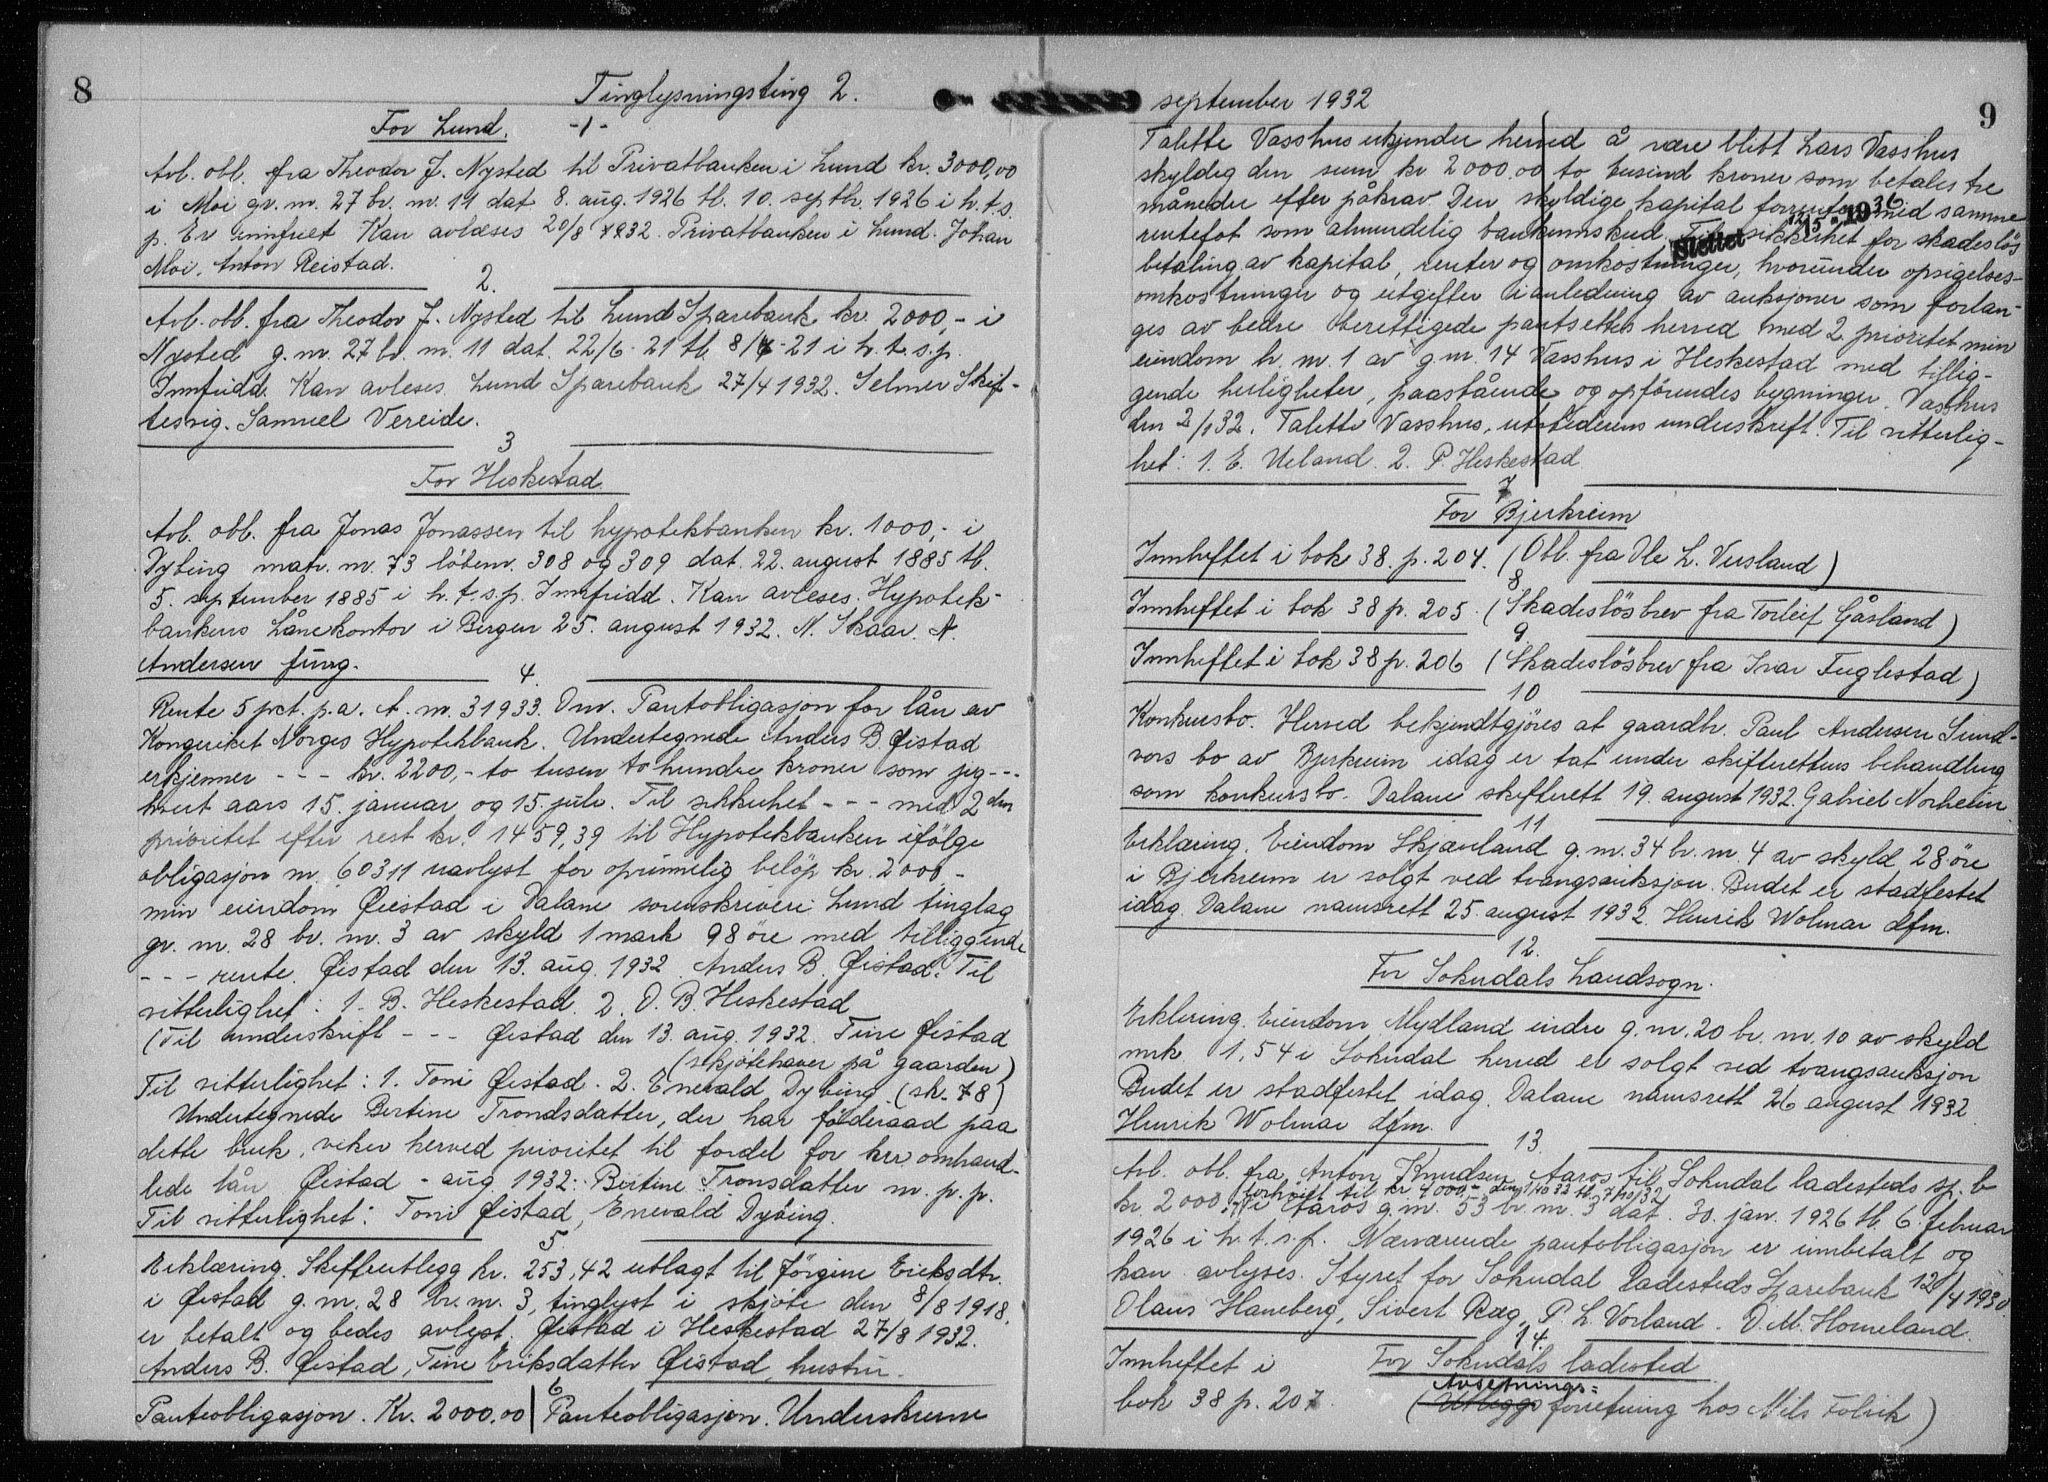 8
Tinglysningsting 2.
For Lund. -1-
Avl. obl. fra Theodor J. Nysted til Privatbanken i Lund kr. 3000,00
i Moi gr. nr. 27 br. nr. 11 dat 8. aug. 1926 tl. 10. septb. 1926 i h.t.s.
p. Er innfriet Kan avlæses 20/8 1932. Privatbanken i Lund. Johan
Moi. Anton Reistad.
2.
Avl. obl. fra Theodor J. Nysted til Lund Sparebank kr. 2000,- i
Nysted g. nr. 27 br. nr. 11 dat. 22/6-21 tl. 8/7-21 i h.t.s.p.
Innfridd. Kan avleses. Lund Sparebank 27/4 1932. Selmer Skif-
tesvig. Samuel Vereide.
3
For Heskestad
Avl. obl. fra Jonas Jonassen til hypotekbanken kr. 1000,- i
Dybing matr. nr. 73 löbenr. 308 og 309 dat. 22. august 1885 tl.
5. september 1885 i h.t.s.p. Innfridd. Kan avleses. Hypotek-
bankens Lånekontor i Bergen 25. august 1932. N. Skaar. N.
Andersen fung.
4.
Rente 5 pct. p.a. A. nr. 31933. Omv. Pantobligasjon for lån av
Kongeriket Norges Hypotekbank. Undertegnede Anders B. Øistad
erkjenner --- kr. 2200,- to tusen to hundre kroner som jeg ---
hvert aars 15. januar og 15. juli. Til sikkerhet --- med 2den
prioritet efter rest kr. 1459,39 til Hypotekbanken ifölge
obligasjon nr. 60311 uavlyst for oprinnelig belöp kr. 2000-
min eiendom Øiestad i Dalane sorenskriveri Lund tinglag
gr. nr. 28 br. nr. 3 av skyld 1 mark 98 öre med tilliggende
--- rente. Øistad den 13. aug. 1932. Anders B. Øistad. Til
vitterlighet: 1. B. Heskestad. 2. O. B. Heskestad
(Til underskrift --- Øistad den 13. aug. 1932. Tine Øistad
(skjötehaver på gaarden)
Til vitterlighet: 1. Toni Øistad. 2. Enevald Dybing. (sk. 78)
Undertegnede Bertine Trondsdatter, der har föderaad paa
dette bruk, viker herved prioritet til fordel for her omhand-
lede lån Øistad - aug 1932. Bertine Tronsdatter m.p.p.
Til vitterlighet: Toni Øistad, Enevald Dybing.
5.
Erklæring. Skifteutlegg kr. 253,42 utlagt til Jörgine Eriksdtr.
i Øistad g. nr. 28 br. nr. 3, tinglyst i skjöte den 8/8 1918,
er betalt og bedes avlyst. Øistad i Heskestad 27/8 1932.
Anders B. Øistad, Tine Eriksdatter Øistad, hustru.
6
Panteobligasjon. Kr. 2000.00 Panteobligasjon. Underskrevne
september 1932
9
Talette Vasshus erkjender herved å være blitt Lars Vasshus
skyldig den sum kr 2000.00 to tusind kroner som betales tre
måneder efter påkrav. Den skyldige kapital forrentes med samme
rentefot som almindelig bankinnskud. Til sikkerhet for skadeslös
Slettet 12/5 1936
betaling av kapital, renter og omkostninger, hvorunder opsigelses-
omkostninger og utgifter i anledning av auksjoner som forlan-
ges av bedre berettigede pantsettes herved med 2 prioritet min
eiendom br. nr. 1 av g nr. 14 Vasshus i Heskestad med tillig-
gende herligheter, paastående og opförendes bygninger. Vasshus
den 2/1 32. Talette Vasshus, utstederens underskrift. Til vitterlig-
het: 1. E. Ueland. 2. P. Heskestad
7
For Bjerkreim
Innheftet i bok 38. p. 204. (Obl. fra Ole L. Versland)
8
Innheftet i bok 38 p. 205. (Skadeslösbrev fra Torleif Gåsland)
9.
Innheftet i bok 38 p. 206 (Skadeslösbrev fra Ivar Fuglestad)
10
Konkursbo. Herved bekjendtgjöres at gaardbr. Paul Andersen Sund-
vors bo av Bjerkreim idag er tat under skifterettens behandling
som konkursbo. Dalane skifterett 19. august 1932. Gabriel Norheim.
11
Erklæring. Eiendom Skjæveland g. nr. 34 br. nr. 4 av skyld 28 öre
i Bjerkreim er solgt ved tvangsauksjon. Budet er stadfestet
idag. Dalane namsrett 25. august 1932. Henrik Wolmar dfm.
12.
For Sokndals Landsogn.
Erklering. Eiendom Mydland indre g. nr. 20 br. nr. 10 av skyld
mrk 1,54 i Sokndal herred er solgt ved tvangsauksjon
Budet er stadfestet idag. Dalane namsrett 26 august 1932
Henrik Wolmar dfm.
13.
Avl. obl. fra Anton Knudsen Aaros til Sokndal ladesteds sp. b
forhöiet til kr 4000,- den 1/10 32 tl. 7/10/32
kr. 2000,- i Aaros g. nr. 53 br. nr. 3 dat. 30. jan. 1926 tl. 6. februar
1926 i h.t.s.p. Nærværende pantobligasjon er innbetalt og
kan avlyses. Styret for Sokndal ladesteds Sparebank 12/4 1930
Olaus Haneberg, Sivert Ræg, P. L. Vorland. O. M. Homeland.
14.
Innheftet i For Sokndals ladested
Avsetnings=
bok 38 p. 207. (Utleggs forretning hos Nils Tolvik)